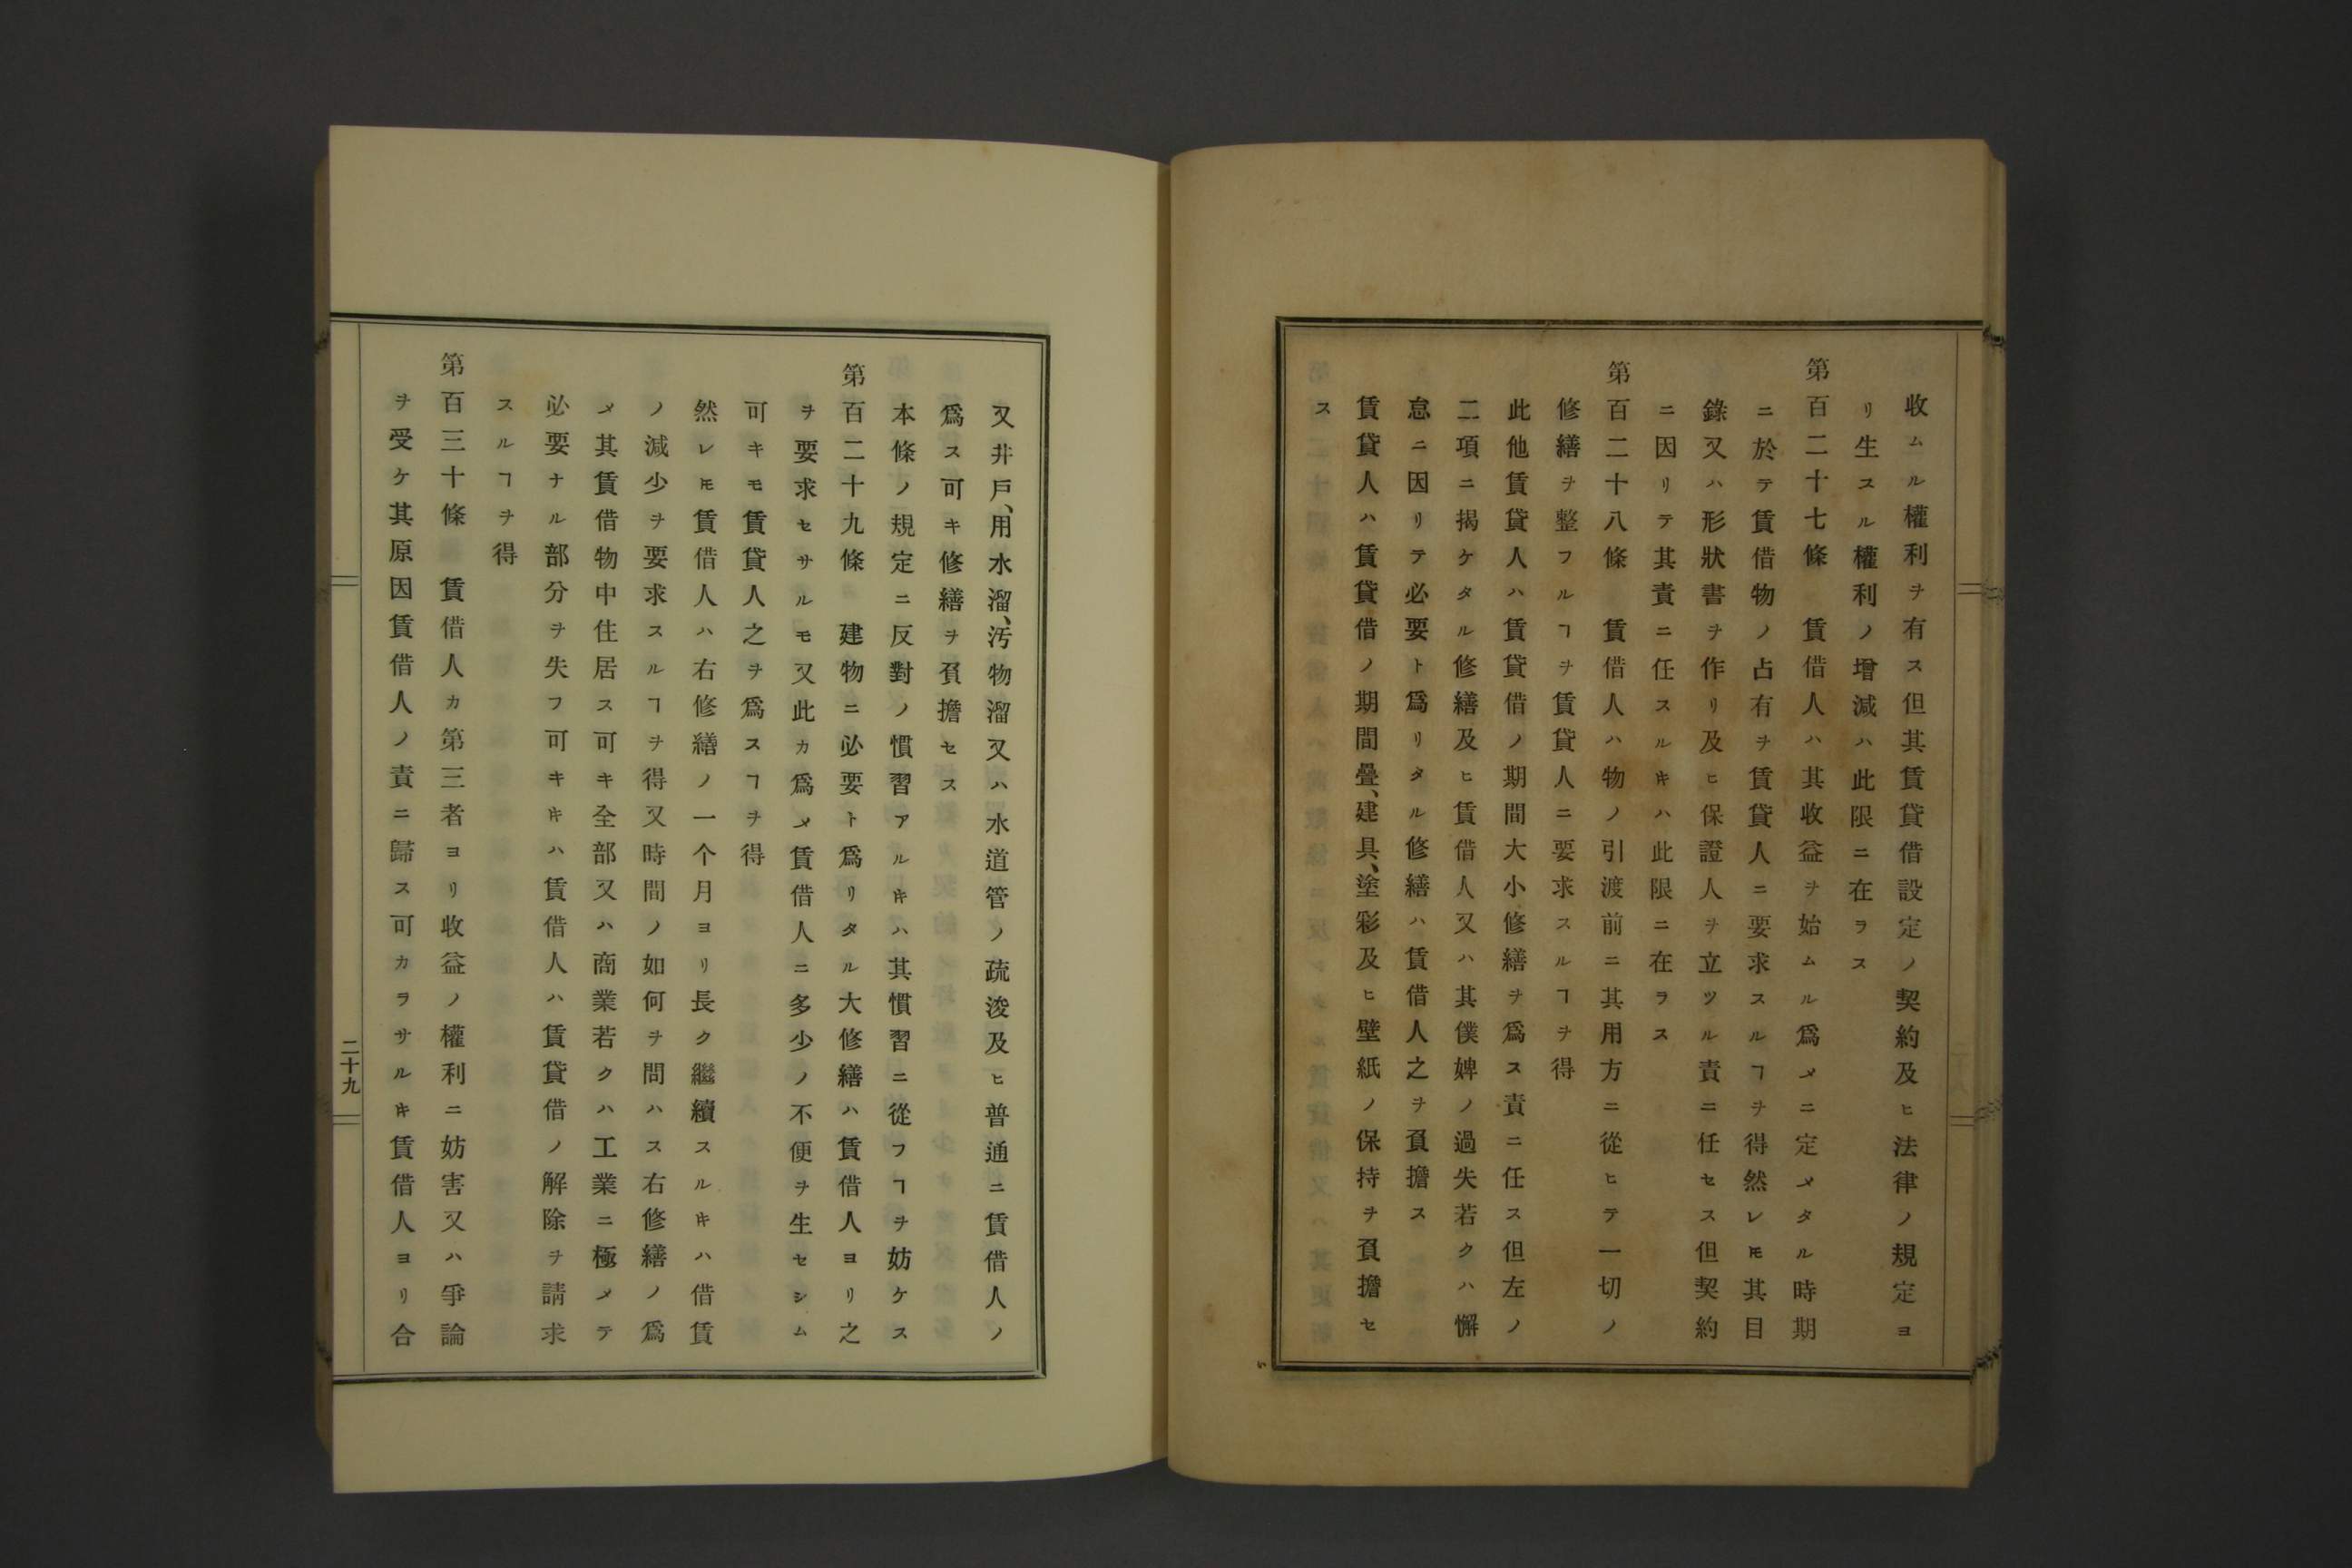 收ムル權利ヲ有ス但其賃貸借設定ノ契約及ヒ法律ノ規定ヨ
リ生スル權利ノ增減ハ此限ニ在ラス
第百二十七條　賃借人ハ其收益ヲ始ムル爲メニ定メタル時期
ニ於テ賃借物ノ占有ヲ賃貸人ニ要求スルヿヲ得然レ𪜈其目
錄又ハ形狀書ヲ作リ及ヒ保證人ヲ立ツル責ニ任セス但契約
ニ因リテ其責ニ任スルキハ此限ニ在ラス
第百二十八條　賃借人ハ物ノ引渡前ニ其用方ニ從ヒテ一切ノ
修繕ヲ整フルヿヲ賃貸人ニ要求スルヿヲ得
此他賃貸人ハ賃貸借ノ期間大小修繕ヲ爲ス責ニ任ス但左ノ
二項ニ揭ケタル修繕及ヒ賃借人又ハ其僕婢ノ過失若クハ懈
怠ニ因リテ必要ト爲リタル修繕ハ賃借人之ヲ負擔ス
賃貸人ハ賃貸借ノ期間疊、建具、塗彩及ヒ壁紙ノ保持ヲ負擔セ
ス
又井戶、用水溜、汚物溜又ハ水道管ノ疏浚及ヒ普通ニ賃借人ノ
爲ス可キ修繕ヲ負擔セス
本條ノ規定ニ反對ノ慣習アルキハ其慣習ニ從フヿヲ妨ケス
第百二十九條　建物ニ必要ト爲リタル大修繕ハ賃借人ヨリ之
ヲ要求セサルモ又此カ爲メ賃借人ニ多少ノ不便ヲ生セシム
可キモ賃貸人之ヲ爲スヿヲ得
然レ𪜈賃借人ハ右修繕ノ一个月ヨリ長ク繼續スルキハ借賃
ノ減少ヲ要求スルヿヲ得又時間ノ如何ヲ問ハス右修繕ノ爲
メ其賃借物中住居ス可キ全部又ハ商業若クハ工業ニ極メテ
必要ナル部分ヲ失フ可キキハ賃借人ハ賃貸借ノ解除ヲ請求
スルヿヲ得
第百三十條　賃借人カ第三者ヨリ收益ノ權利ニ妨害又ハ爭論
ヲ受ケ其原因賃借人ノ責ニ歸ス可カラサルキ賃借人ヨリ合
二十九